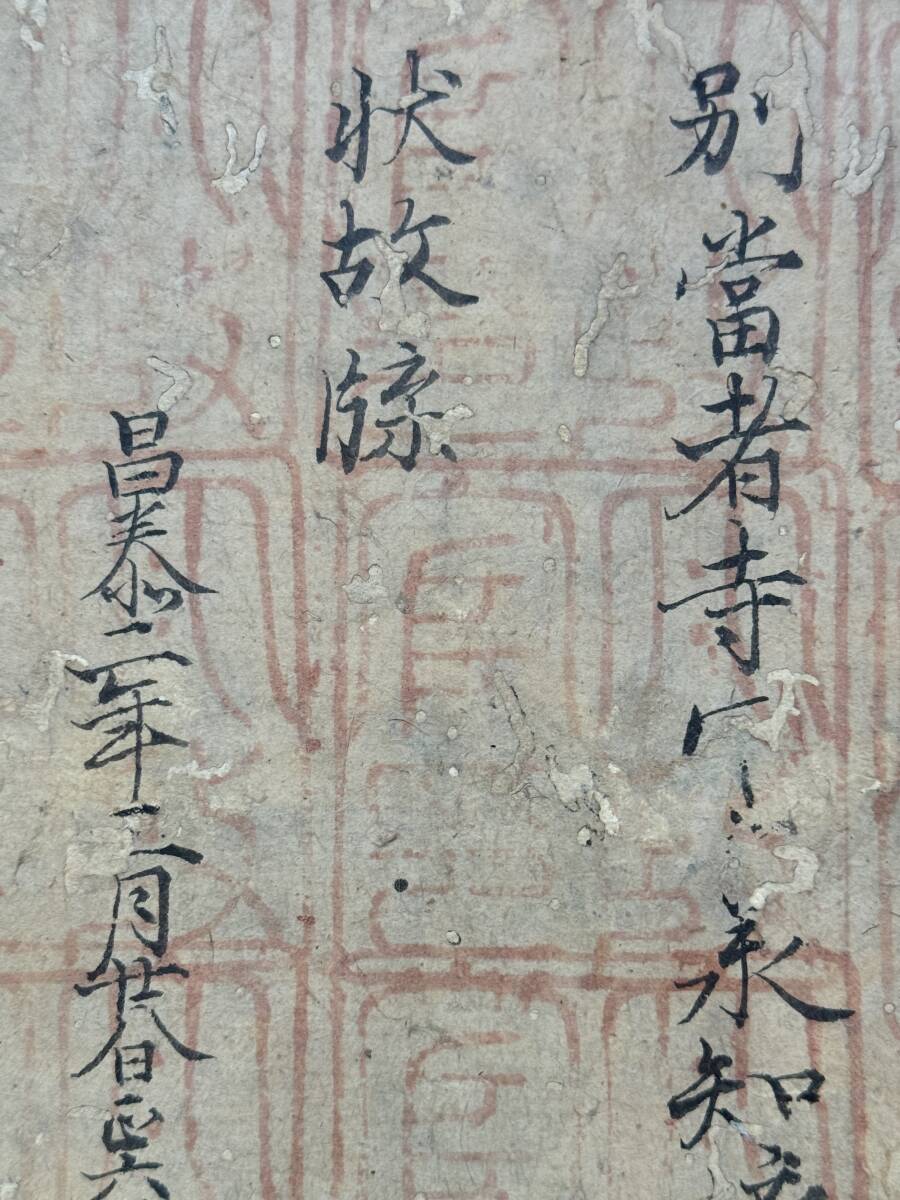 別當者寺承知
状故牒
昌泰二年二月廿八日正六